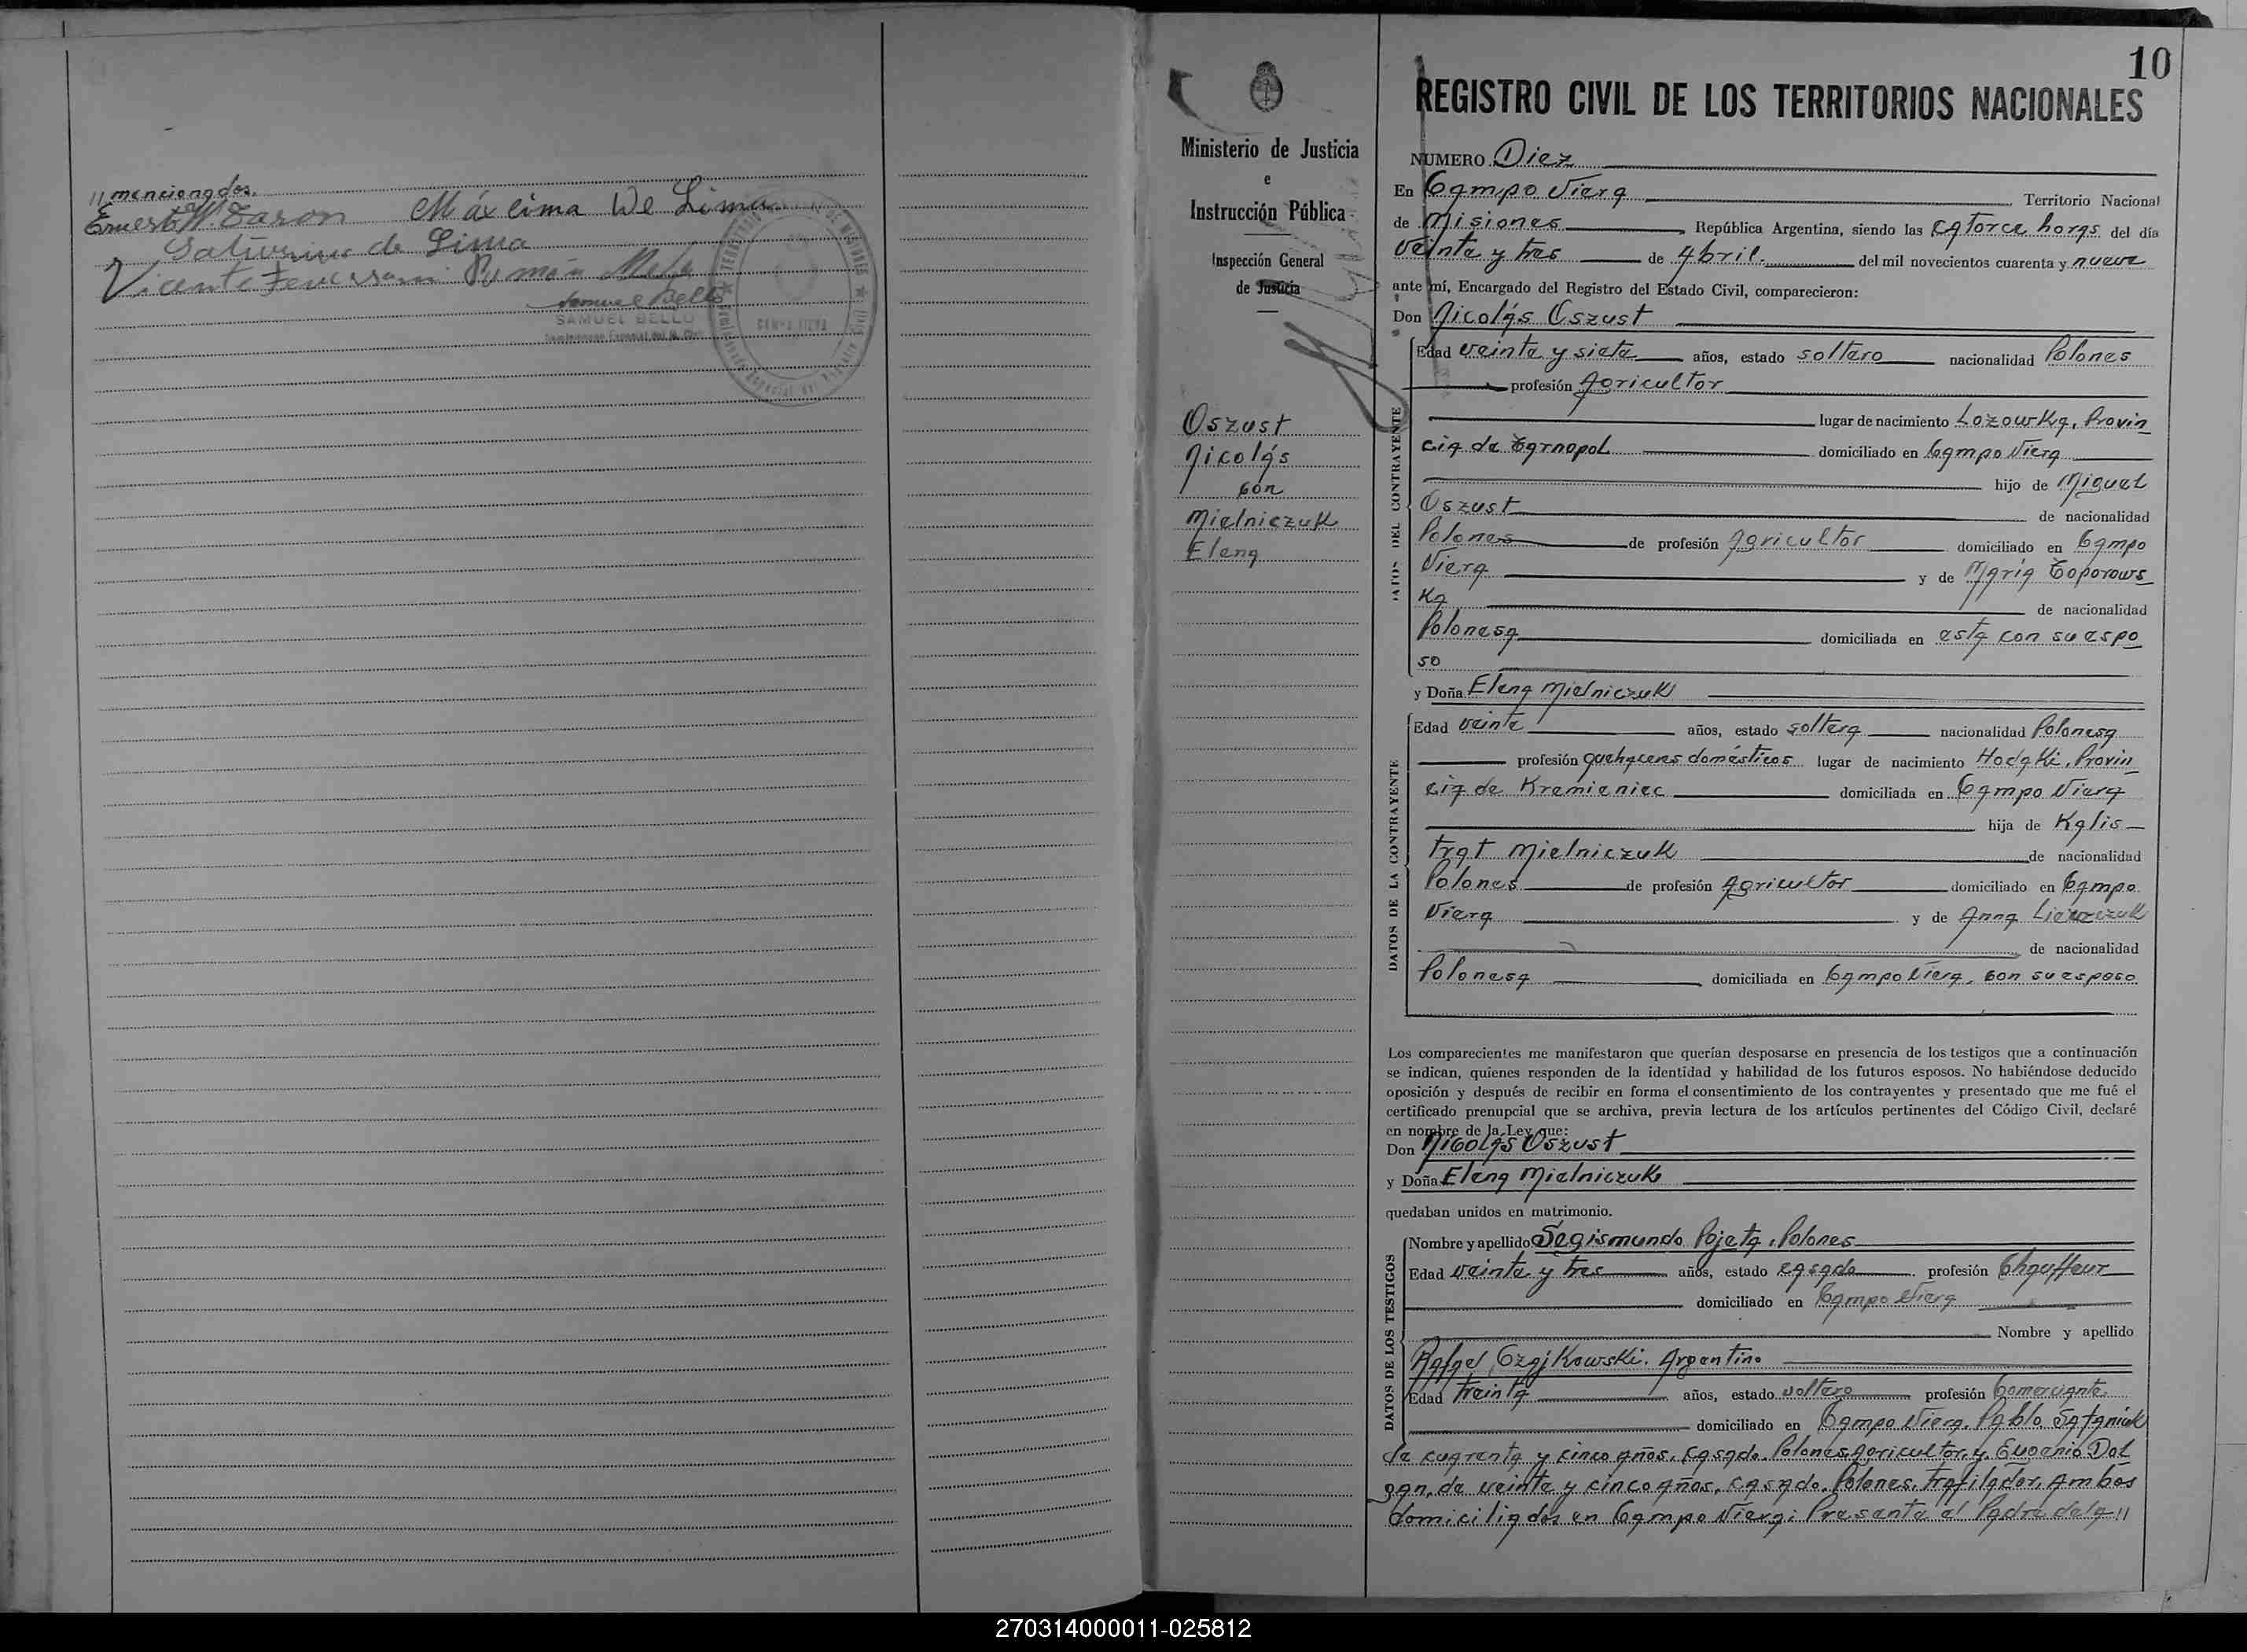 " mencionados.
Ernesto W. Zaron Máxima De Lima
Saturnino de Lima
Vicente Román
Samuel Bello
SAMUEL BELLO
10
REGISTRO CIVIL DE LOS TERRITORIOS NACIONALES
Ministerio de Justicia
e
Instrucción Pública
Inspección General
de Justicia
Oszust
Nicolás
con
Mielniczuk
Elena
NUMERO Diez
En Campo Viera Territorio Nacional
de Misiones República Argentina, siendo las catorce horas del día
veinte y tres de Abril. del mil novecientos cuarenta y nueve
ante mí, Encargado del Registro del Estado Civil, comparecieron:
Don Nicolás Oszust
DATOS DEL CONTRAYENTE
Edad veinte y siete años, estado soltero nacionalidad Polones
profesión Agricultor
lugar de nacimiento Lozowka, Provin
cia de Tarnopol domiciliado en Campo Viera
hijo de Miguel
Oszust de nacionalidad
Polones de profesión Agricultor domiciliado en Campo
Viera y de María Toporows
ka de nacionalidad
Polonesa domiciliada en esta con su espo
so
y Doña Elena Mielniczuk
DATOS DE LA CONTRAYENTE
Edad veinte años, estado soltera nacionalidad Polonesa
profesión quehaceres domésticos lugar de nacimiento Hodaki, Provin
cia de Kremieniec domiciliada en Campo Viera
hija de Kalis
trat Mielniczuk de nacionalidad
Polones de profesión Agricultor domiciliado en Campo
Viera y de Anna
de nacionalidad
Polonesa domiciliada en Campo Viera, con su esposo
Los comparecientes me manifestaron que querían desposarse en presencia de los testigos que a continuación
se indican, quienes responden de la identidad y habilidad de los futuros esposos. No habiéndose deducido
oposición y después de recibir en forma el consentimiento de los contrayentes y presentado que me fué el
certificado prenupcial que se archiva, previa lectura de los artículos pertinentes del Código Civil, declaré
en nombre de la Ley que:
Don Nicolás Oszust
y Doña Elena Mielniczuk
quedaban unidos en matrimonio.
DATOS DE LOS TESTIGOS
Nombre y apellido Segismundo Pojeta, Polones
Edad veinte y tres años, estado casado profesión Chauffeur
domiciliado en Campo Viera
Nombre y apellido
Rafael Czajkowski. Argentino
Edad treinta años, estado soltero profesión Comerciante.
domiciliado en Campo Viera. Pablo Sataniuk
de cuarenta y cinco años, casado. Polones. Agricultor, y Eugenio Dol
gan, de veinte y cinco años, casado. Polones. Trafilador, Ambos
domiciliados en Campo Viera; Presente el Padre de la "
270314000011-025812